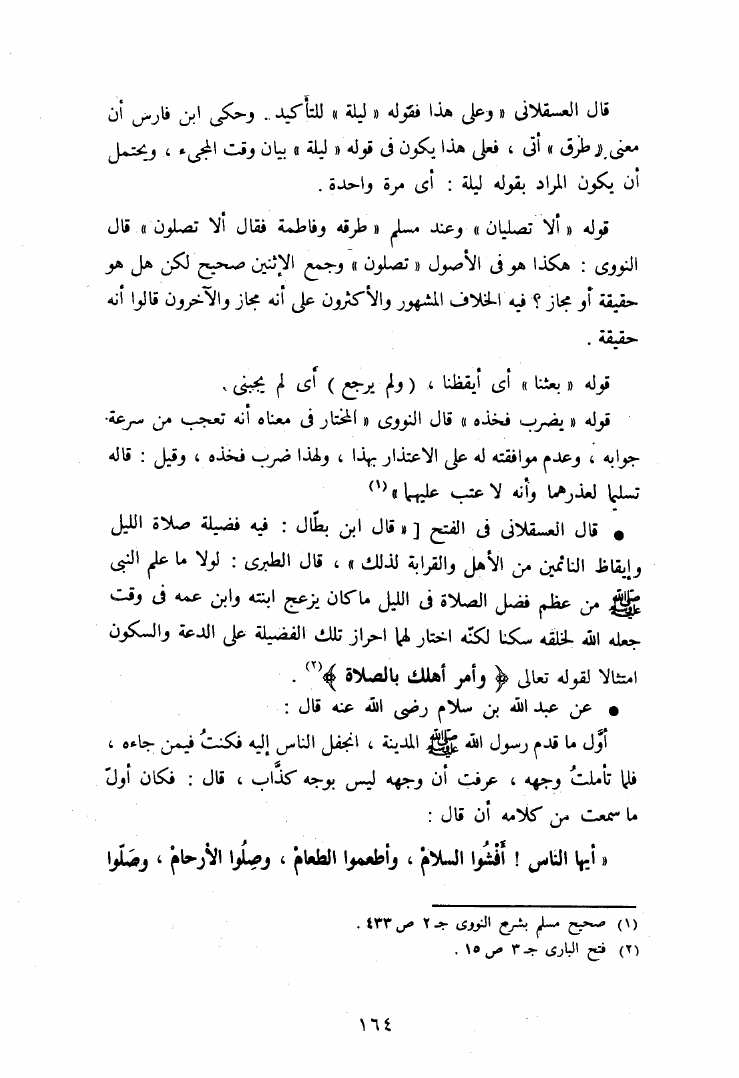 قال العسقلانى « وعلى هذا فقوله « ليلة » للتأكيد .. وحكى ابن فارس أن
معنى « طرق » أتى ، فعلى هذا يكون فى قوله « ليلة » بيان وقت المجىء ، ويحتمل
أن يكون المراد بقوله ليلة : أى مرة واحدة .
قوله « ألا تصليان » وعند مسلم « طرقه وفاطمة فقال ألا تصلون » قال
النووى : هكذا هو فى الأصول « تصلون » وجمع الإثنين صحيح لكن هل هو
حقيقة أو مجاز ؟ فيه الخلاف المشهور والأكثرون على أنه مجاز والآخرون قالوا أنه
حقيقة .
قوله « بعثنا » أى أيقظنا ، ( ولم يرجع ) أى لم يجبنى .
قوله « يضرب فخذه » قال النووى « المختار فى معناه أنه تعجب من سرعة
جوابه ، وعدم موافقته له على الاعتذار بهذا ، ولهذا ضرب فخذه ، وقيل : قاله
تسليما لعذرهما وأنه لا عتب عليهما » (١)
• قال العسقلانى فى الفتح [ « قال ابن بطّال : فيه فضيلة صلاة الليل
وإيقاظ النائمين من الأهل والقرابة لذلك » ، قال الطبرى : لولا ما علم النبى
ﷺ من عظم فضل الصلاة فى الليل ما كان يزعج ابنته وابن عمه فى وقت
جعله الله لخلقه سكنا لكنّه اختار لهما احراز تلك الفضيلة على الدعة والسكون
امتثالا لقوله تعالى ﴿ وأمر أهلك بالصلاة ﴾ (٢) .
• عن عبد الله بن سلام رضى الله عنه قال :
أوَّل ما قدم رسول الله ﷺ المدينة ، انجفل الناس إليه فكنتُ فيمن جاءه ،
فلما تأملتُ وجهه ، عرفت أن وجهه ليس بوجه كذَّاب ، قال : فكان أولّ
ما سمعت من كلامه أن قال :
« أيها الناس ! أَفْشُوا السلامْ ، وأطعموا الطعامْ ، وصِلُوا الأرحامْ ، وصَلّوا
(١) صحيح مسلم بشرح النووى جـ ٢ ص ٤٣٣ .
(٢) فتح البارى جـ ٣ ص ١٥ .
١٦٤